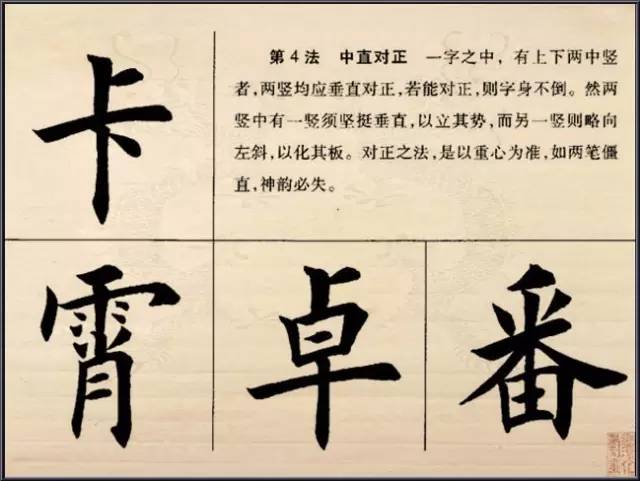 卡
第4法 中直对正 一字之中，有上下两中竖
者，两竖均应垂直对正，若能对正，则字身不倒。然两
竖中有一竖须坚挺垂直，以立其势，而另一竖则略向
左斜，以化其板。对正之法，是以重心为准，如两笔僵
直，神韵必失。
霄 卓 番